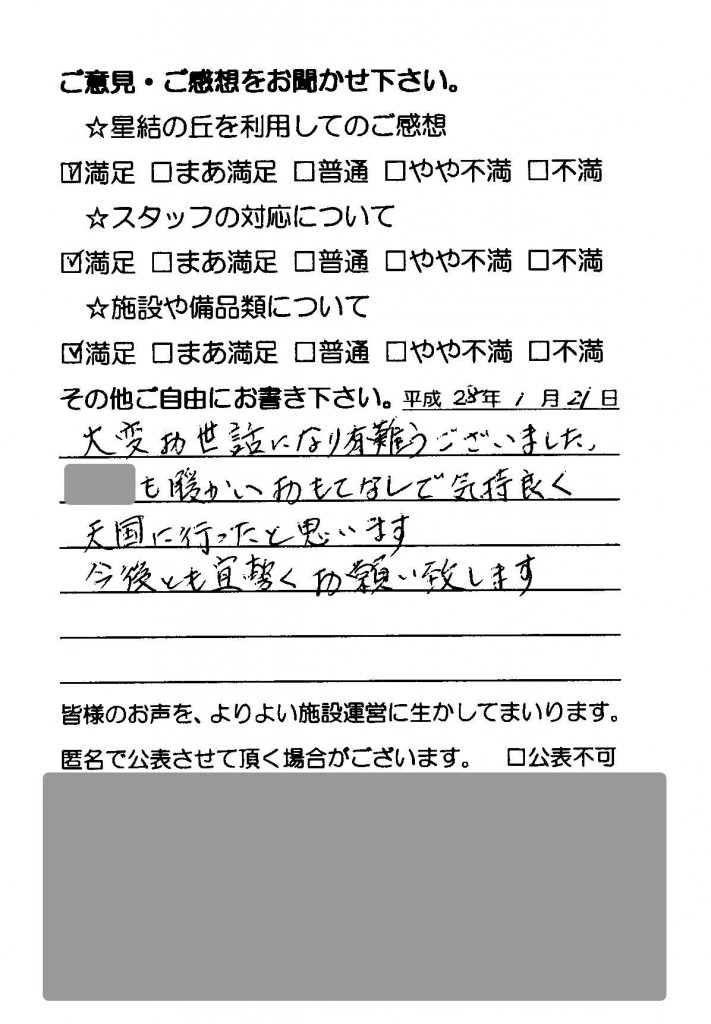 ご意見・ご感想をお聞かせ下さい。
☆星結の丘を利用してのご感想
☑満足 □まあ満足 □普通 □やや不満 □不満
☆スタッフの対応について
☑満足 □まあ満足 □普通 □やや不満 □不満
☆施設や備品類について
☑満足 □まあ満足 □普通 □やや不満 □不満
その他ご自由にお書き下さい。平成 28年 1月 21日
大変お世話になり有難うございました、
も暖かいおもてなしで気持良く
天国に行ったと思います
今後とも宜敷くお願い致します
皆様のお声を、よりよい施設運営に生かしてまいります。
匿名で公表させて頂く場合がございます。 □公表不可